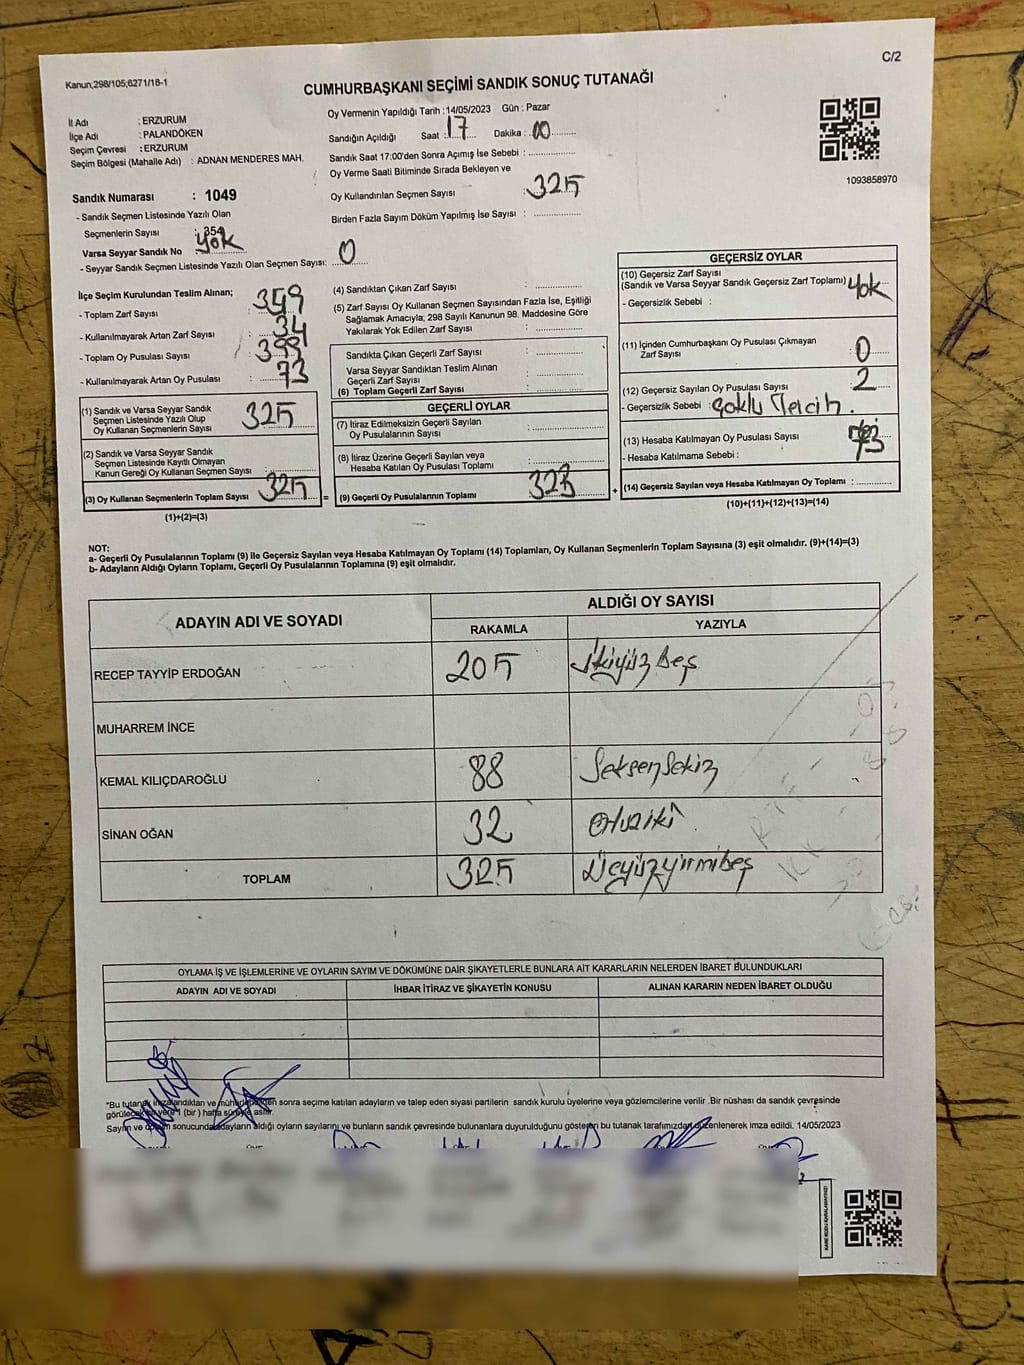 C/2
Kanun,298/105;6271/18-1
CUMHURBAŞKANI SEÇİMİ SANDIK SONUÇ TUTANAĞI
İl Adı : ERZURUM
İlçe Adı : PALANDÖKEN
Seçim Çevresi : ERZURUM
Seçim Bölgesi (Mahalle Adı) : ADNAN MENDERES MAH.
Sandık Numarası : 1049
- Sandık Seçmen Listesinde Yazılı Olan
Seçmenlerin Sayısı : 354
Varsa Seyyar Sandık No yok
- Seyyar Sandık Seçmen Listesinde Yazılı Olan Seçmen Sayısı: 0
Oy Vermenin Yapıldığı Tarih : 14/05/2023 Gün : Pazar
Sandığın Açıldığı Saat : 17 Dakika : 00
Sandık Saat 17:00'den Sonra Açımış İse Sebebi :
Oy Verme Saati Bitiminde Sırada Bekleyen ve
Oy Kullandırılan Seçmen Sayısı : 325
Birden Fazla Sayım Döküm Yapılmış İse Sayısı :
1093858970
İlçe Seçim Kurulundan Teslim Alınan;
- Toplam Zarf Sayısı : 359
- Kullanılmayarak Artan Zarf Sayısı : 34
- Toplam Oy Pusulası Sayısı :
- Kullanılmayarak Artan Oy Pusulası : 73
(1) Sandık ve Varsa Seyyar Sandık
Seçmen Listesinde Yazılı Olup
Oy Kullanan Seçmenlerin Sayısı 325
(2) Sandık ve Varsa Seyyar Sandık
Seçmen Listesinde Kayıtlı Olmayan
Kanun Gereği Oy Kullanan Seçmen Sayısı :
(3) Oy Kullanan Seçmenlerin Toplam Sayısı 325 =
(1)+(2)=(3)
(4) Sandıktan Çıkan Zarf Sayısı :
(5) Zarf Sayısı Oy Kullanan Seçmen Sayısından Fazla İse, Eşitliği
Sağlamak Amacıyla; 298 Sayılı Kanunun 98. Maddesine Göre
Yakılarak Yok Edilen Zarf Sayısı :
Sandıkta Çıkan Geçerli Zarf Sayısı :
Varsa Seyyar Sandıktan Teslim Alınan
Geçerli Zarf Sayısı :
(6) Toplam Geçerli Zarf Sayısı :
GEÇERLİ OYLAR
(7) İtiraz Edilmeksizin Geçerli Sayılan
Oy Pusulalarının Sayısı :
(8) İtiraz Üzerine Geçerli Sayılan veya
Hesaba Katılan Oy Pusulası Toplamı :
(9) Geçerli Oy Pusulalarının Toplamı : 323 +
GEÇERSİZ OYLAR
(10) Geçersiz Zarf Sayısı
(Sandık ve Varsa Seyyar Sandık Geçersiz Zarf Toplamı) yok
- Geçersizlik Sebebi :
(11) İçinden Cumhurbaşkanı Oy Pusulası Çıkmayan
Zarf Sayısı : 0
(12) Geçersiz Sayılan Oy Pusulası Sayısı : 2
- Geçersizlik Sebebi : Çoklu Tercih.
(13) Hesaba Katılmayan Oy Pusulası Sayısı 73
- Hesaba Katılmama Sebebi :
(14) Geçersiz Sayılan veya Hesaba Katılmayan Oy Toplamı :
(10)+(11)+(12)+(13)=(14)
NOT:
a- Geçerli Oy Pusulalarının Toplamı (9) ile Geçersiz Sayılan veya Hesaba Katılmayan Oy Toplamı (14) Toplamları, Oy Kullanan Seçmenlerin Toplam Sayısına (3) eşit olmalıdır. (9)+(14)=(3)
b- Adayların Aldığı Oyların Toplamı, Geçerli Oy Pusulalarının Toplamına (9) eşit olmalıdır.
ADAYIN ADI VE SOYADI ALDIĞI OY SAYISI
RAKAMLA YAZIYLA
RECEP TAYYİP ERDOĞAN 205 ikiyüz beş
MUHARREM İNCE
KEMAL KILIÇDAROĞLU 88 Seksensekiz
SİNAN OĞAN 32 Otuziki
TOPLAM 325 Üçyüzyirmibeş
OYLAMA İŞ VE İŞLEMLERİNE VE OYLARIN SAYIM VE DÖKÜMÜNE DAİR ŞİKAYETLERLE BUNLARA AİT KARARLARIN NELERDEN İBARET BULUNDUKLARI
ADAYIN ADI VE SOYADI İHBAR İTİRAZ VE ŞİKAYETİN KONUSU ALINAN KARARIN NEDEN İBARET OLDUĞU
"Bu tutanak imzalandıktan ve mühürlendikten sonra seçime katılan adayların ve talep eden siyasi partilerin sandık kurulu üyelerine veya gözlemcilerine verilir .Bir nüshası da sandık çevresinde
görülecek bir yere 1 (bir ) hafta süreyle asılır.
Sayım ve döküm sonucunda adayların aldığı oyların sayılarını ve bunların sandık çevresinde bulunanlara duyurulduğunu gösteren bu tutanak tarafımızdan düzenlenerek imza edildi. 14/05/2023